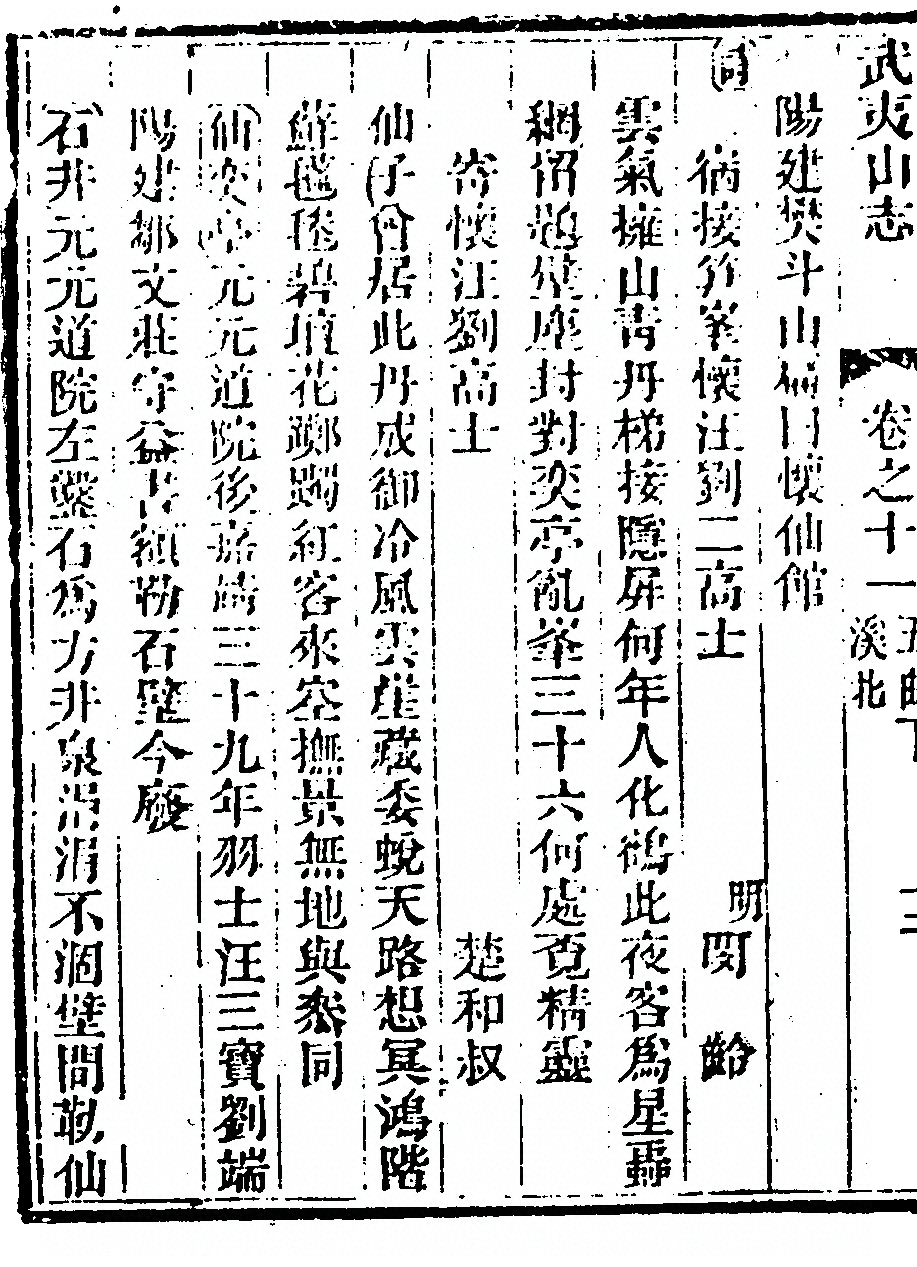 武夷山志 卷之十一 五曲下 溪北 十二
陽建樊斗山扁曰懷仙館
宿接筍峯懷汪劉二高士 明 閔 齡
雲氣擁山青丹梯接隱屏何年人化鶴此夜客爲星霹
網留題壁座封對奕亭亂峯三十六何處覔精靈
寄懷汪劉高士 楚和叔
仙子曾居此丹成御冷風雲崖藏委蛻天路想冥鴻階
蘚毯毯碧墳花躑躅紅客來空撫景無地與叅同
仙奕亭元元道院後嘉靖三十九年羽士汪三寶劉端
陽建鄒文莊守益書額勒石壁今廢
石井元元道院左鑿石爲方井泉涓涓不涸壁間勒仙